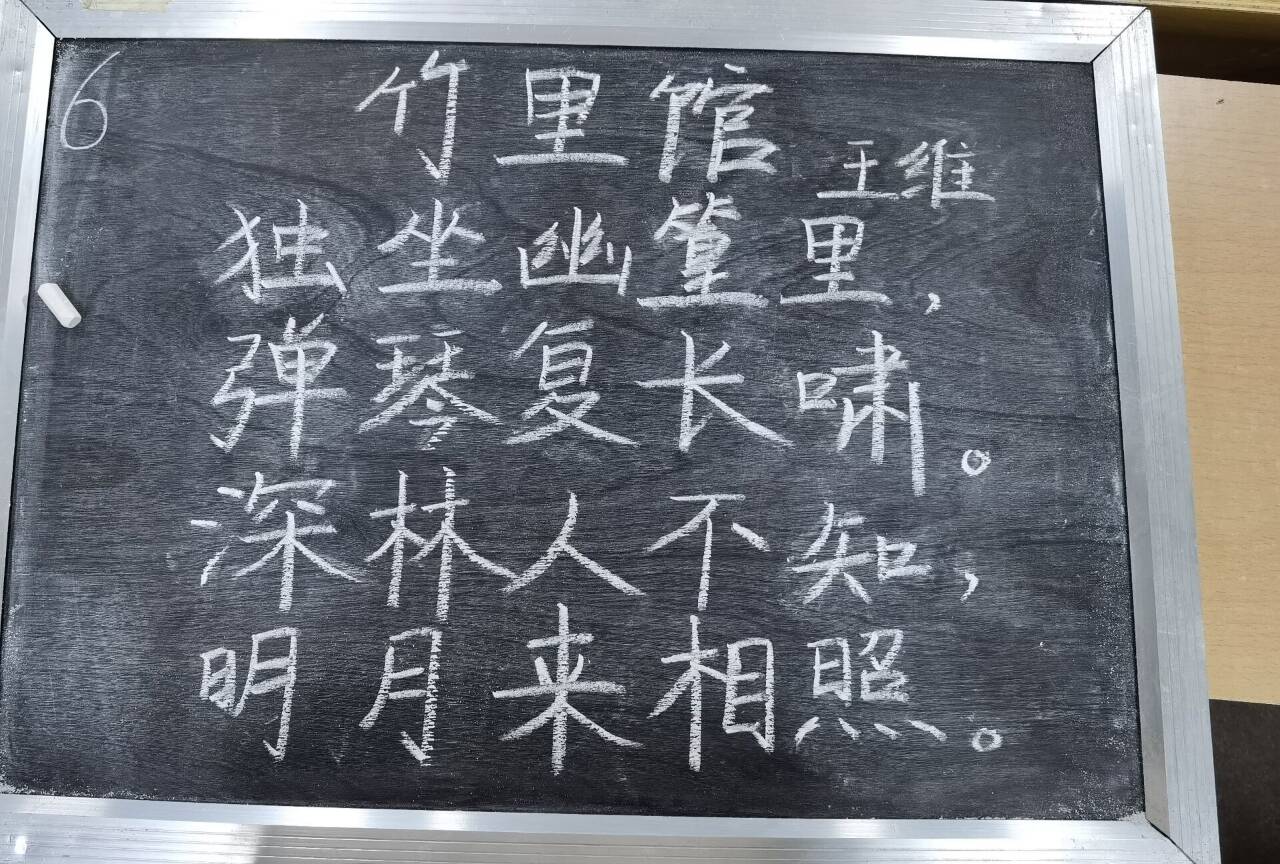 6
竹里馆
王维
独坐幽篁里，
弹琴复长啸。
深林人不知，
明月来相照。